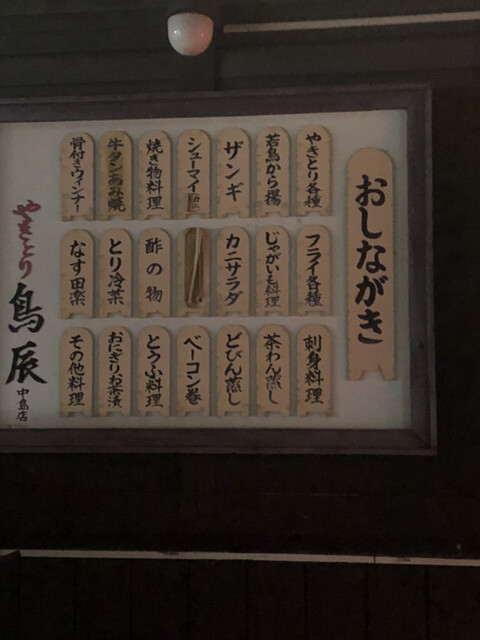 おしながき
やきとり各種
若鳥から揚
ザンギ
シューマイ
焼き物料理
牛タンあみ焼
骨付きウィンナー
フライ各種
じゃがいも料理
カニサラダ
酢の物
とり冷菜
なす田楽
刺身料理
茶わん蒸し
どびん蒸し
ベーコン巻
とうふ料理
おにぎりお茶漬
その他料理
やきとり
鳥辰
中島店